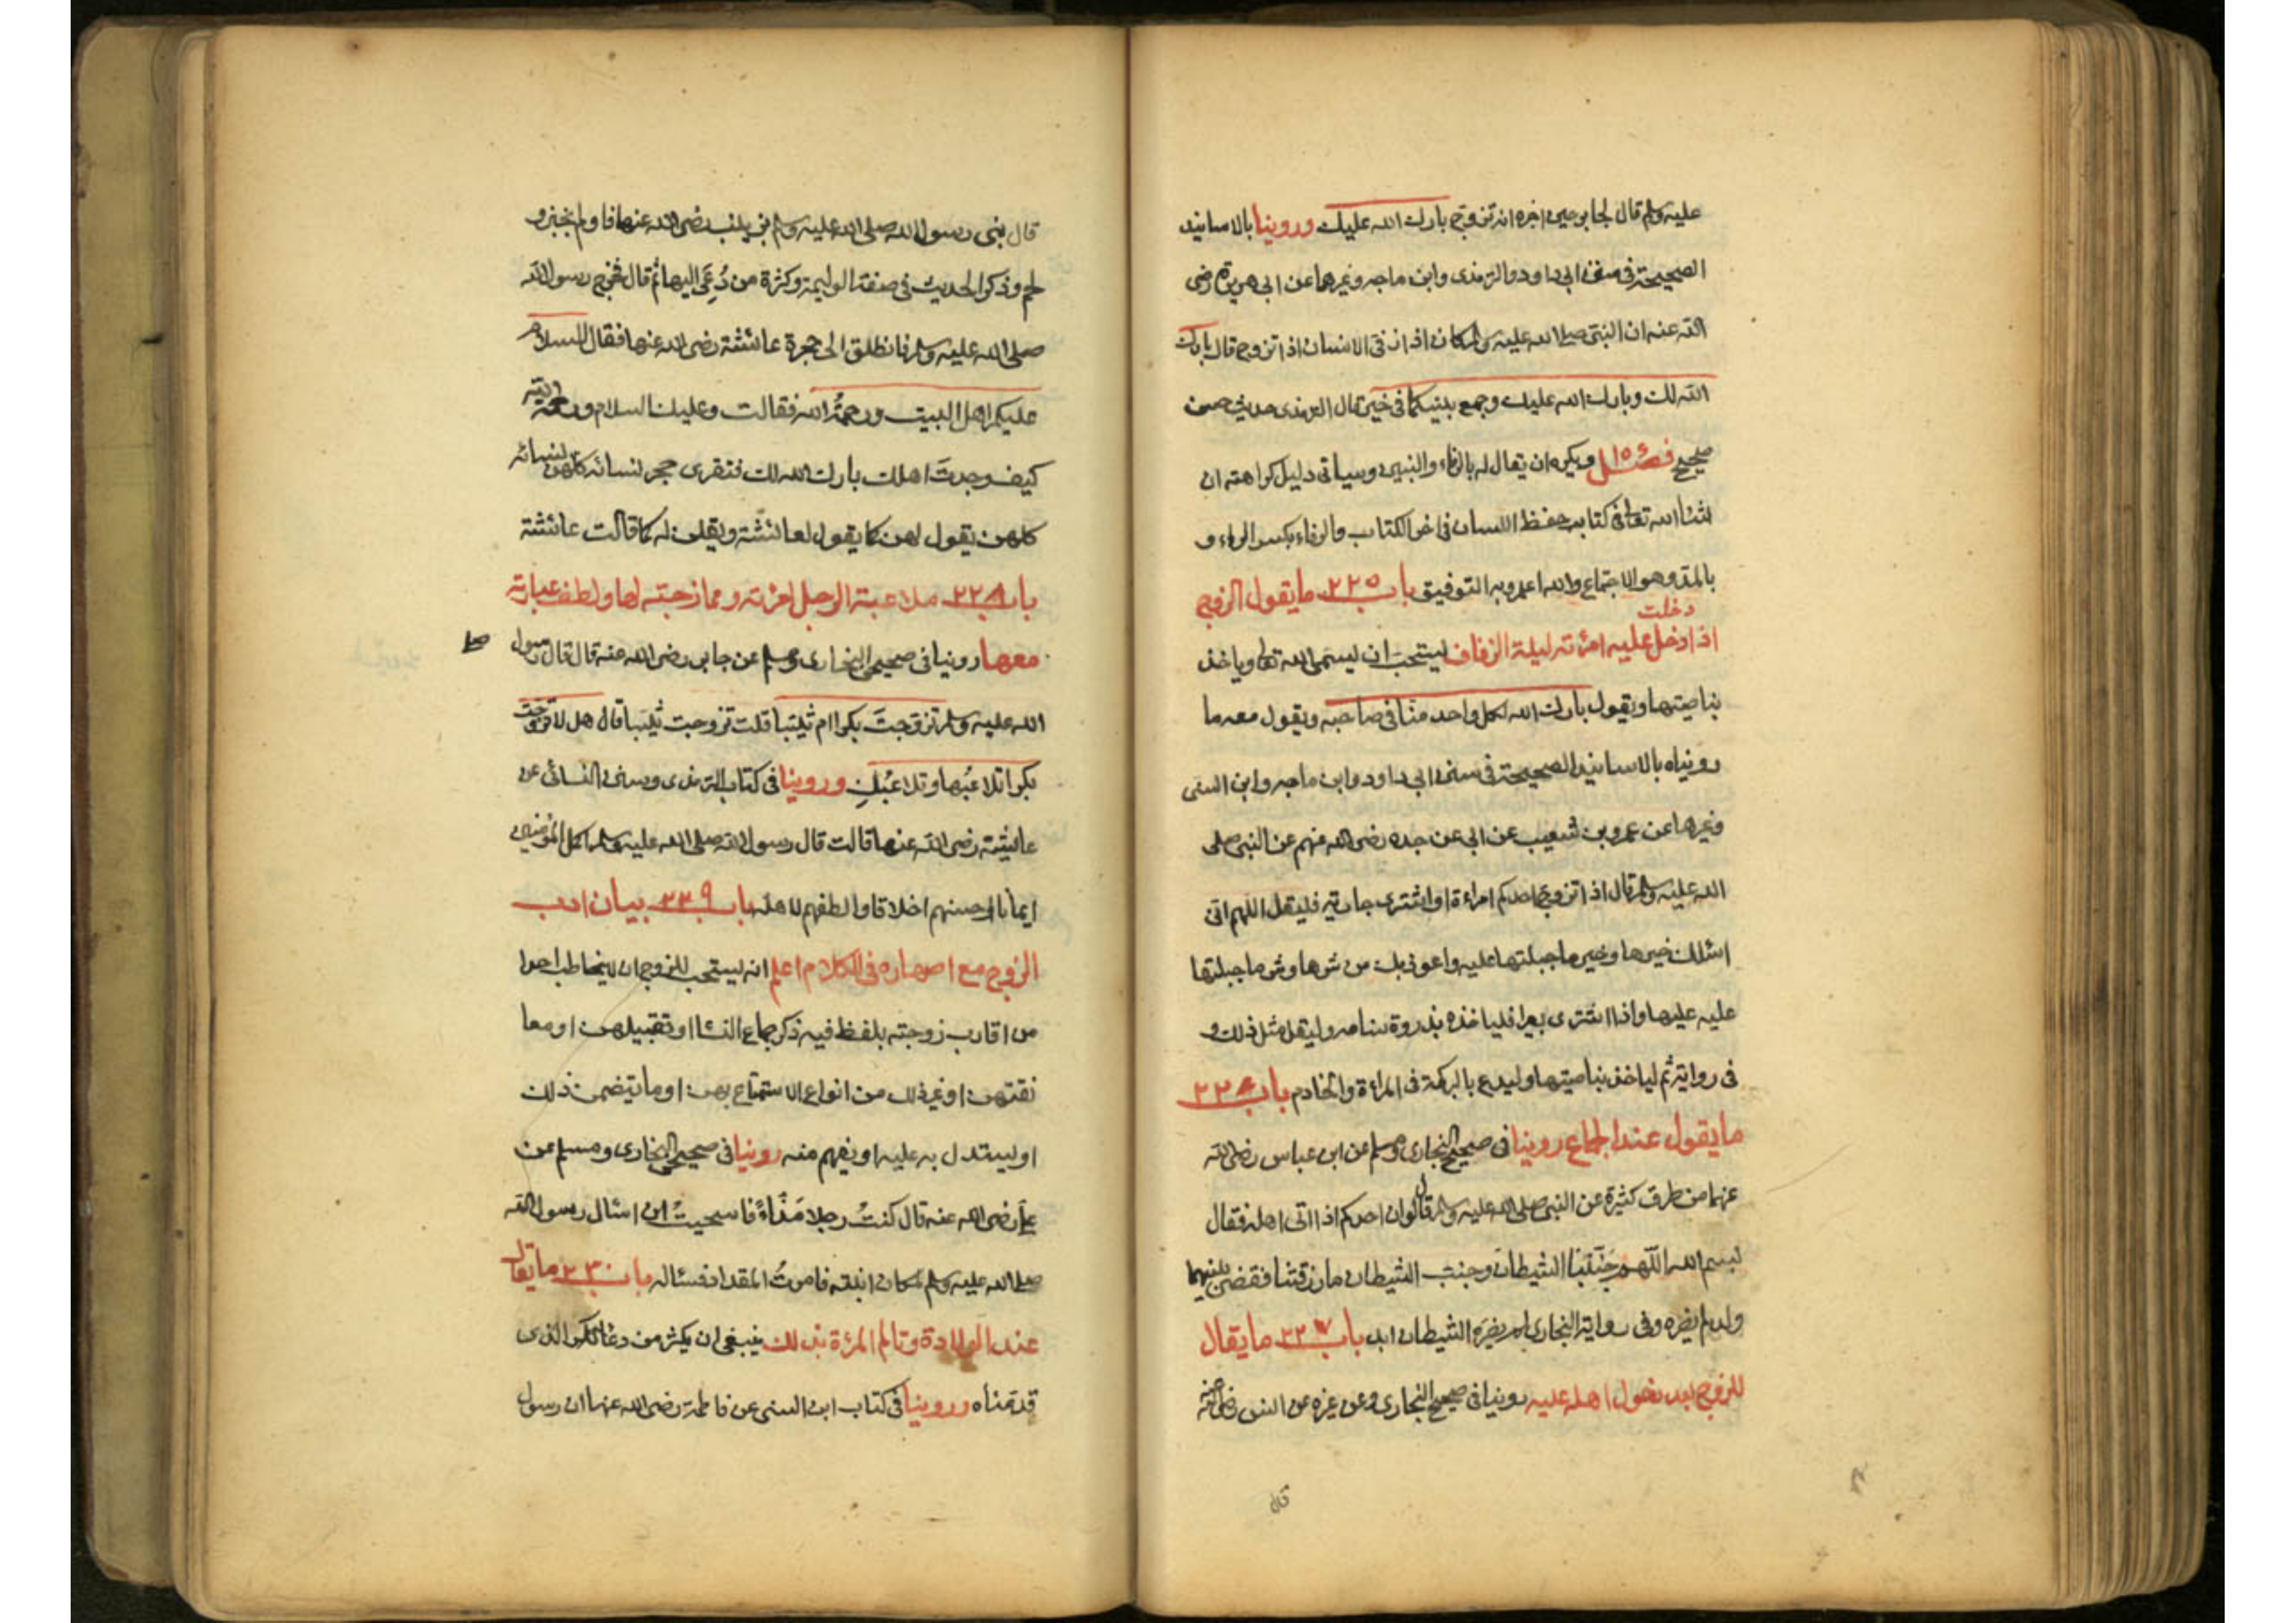 عليه وسلم قال لجابر حين اخبره انه تزوج بارك الله عليك وروينا بالاسانيد
الصحيحة في سنن ابي داود والترمذي وابن ماجه وغيرها عن ابي هريرة رضي
الله عنه ان النبي صلى الله عليه وسلم كان اذا رفى الانسان اذا تزوج قال بارك
الله لك وبارك الله عليك وجمع بينكما في خير قال الترمذي حديث حسن
صحيح فصل ويكره ان يقال له بالرفاء والبنين وسياتي دليل كراهته ان
شاء الله تعالى في كتاب حفظ اللسان في اخر الكتاب والرفاء بكسر الراء و
بالمد وهو الاجتماع والله اعلم وبه التوفيق باب ٢٢٥ ما يقول الزوج
دخلت
اذا ادخل عليه امرئته ليلة الزفاف يستحب ان يسمى الله تعالى وياخذ
بناصيتها ويقول بارك الله لكل واحد منا في صاحبه ويقول معه ما
رويناه بالاسانيد الصحيحة في سنن ابي داود وابن ماجه وابن السني
وغيرها عن عمرو بن شعيب عن ابي عن جده رضي الله عنهم عن النبي صلى
الله عليه وسلم قال اذا تزوج احدكم امراءة او اشترى جارية فليقل اللهم اني
اسئلك خيرها وخير ما جبلتها عليه واعوذ بك من شرها وشر ما جبلتها
عليه عليها واذا اشترى بعيرا فلياخذه بذروة سنامه وليقل مثل ذلك و
في رواية ثم لياخذ بناصيتها وليدع بالبركة في المراءة والخادم باب ٢٢٦
ما يقول عند الجماع روينا في صحيحي البخاري ومسلم عن ابن عباس رضي الله
عنهما من طرق كثيرة عن النبي صلى الله عليه وسلم قال لو ان احدكم اذا اتى اهله فقال
بسم الله اللهم جنبنا الشيطان وجنب الشيطان ما رزقتنا فقضي بينهما
ولد لم يضره وفي رواية البخاري لم يضره الشيطان ابدا باب ٢٢٧ ما يقال
للزوج بعد دخول اهله عليه روينا في صحيح البخاري وعن غيره عن انس رضي الله عنه
قال
قال بنى رسول الله صلى الله عليه وسلم بزينب رضي الله عنها فاولم بخبز و
لحم وذكر الحديث في صفة الوليمة وكثرة من دعي اليها ثم قال فخرج رسول الله
صلى الله عليه وسلم فانطلق الى حجرة عائشة رضي الله عنها فقال السلام
عليكم اهل البيت ورحمة الله فقالت وعليك السلام ورحمة الله
كيف وجدت اهلك بارك الله لك فتقرى حجر نسائه كلهن
كلهن يقول لهن كما يقول لعائشة ويقلن له كما قالت عائشة
باب ٢٢٨ ملاعبة الرجل امرئته وممازحته لها ولطف عبارته
معها روينا في صحيحي البخاري ومسلم عن جابر رضي الله عنه قال قال رسول
الله عليه وسلم تزوجت بكرا ام ثيبا قلت تزوجت ثيبا قال هل لا تزوجت
بكرا تلاعبها وتلاعبك وروينا في كتاب الترمذي وسنن النسائي عن
عائشة رضي الله عنها قالت قال رسول الله صلى الله عليه وسلم اكمل المؤمنين
ايمانا احسنهم اخلاقا والطفهم لاهله باب ٢٢٩ بيان ادب
الزوج مع اصهاره في الكلام اعلم انه يستحب للزوج ان لا يخاطب احدا
من اقارب زوجته بلفظ فيه ذكر جماع النساء او تقبيلهن او معا
نقتهن او غير ذلك من انواع الاستمتاع بهن او ما يتضمن ذلك
او يستدل به عليه او يفهم منه روينا في صحيحي البخاري ومسلم عن
علي رضي الله عنه قال كنت رجلا مذاء فاستحييت ان اسئال رسول الله
صلى الله عليه وسلم لمكان ابنته فامرت المقداد فسئاله باب ٢٣٠ ما يقال
عند الولادة وتالم المرئة بذلك ينبغي ان يكثر من دعاء الكرب الذي
قدمناه وروينا في كتاب ابن السني عن فاطمة رضي الله عنها ان رسول